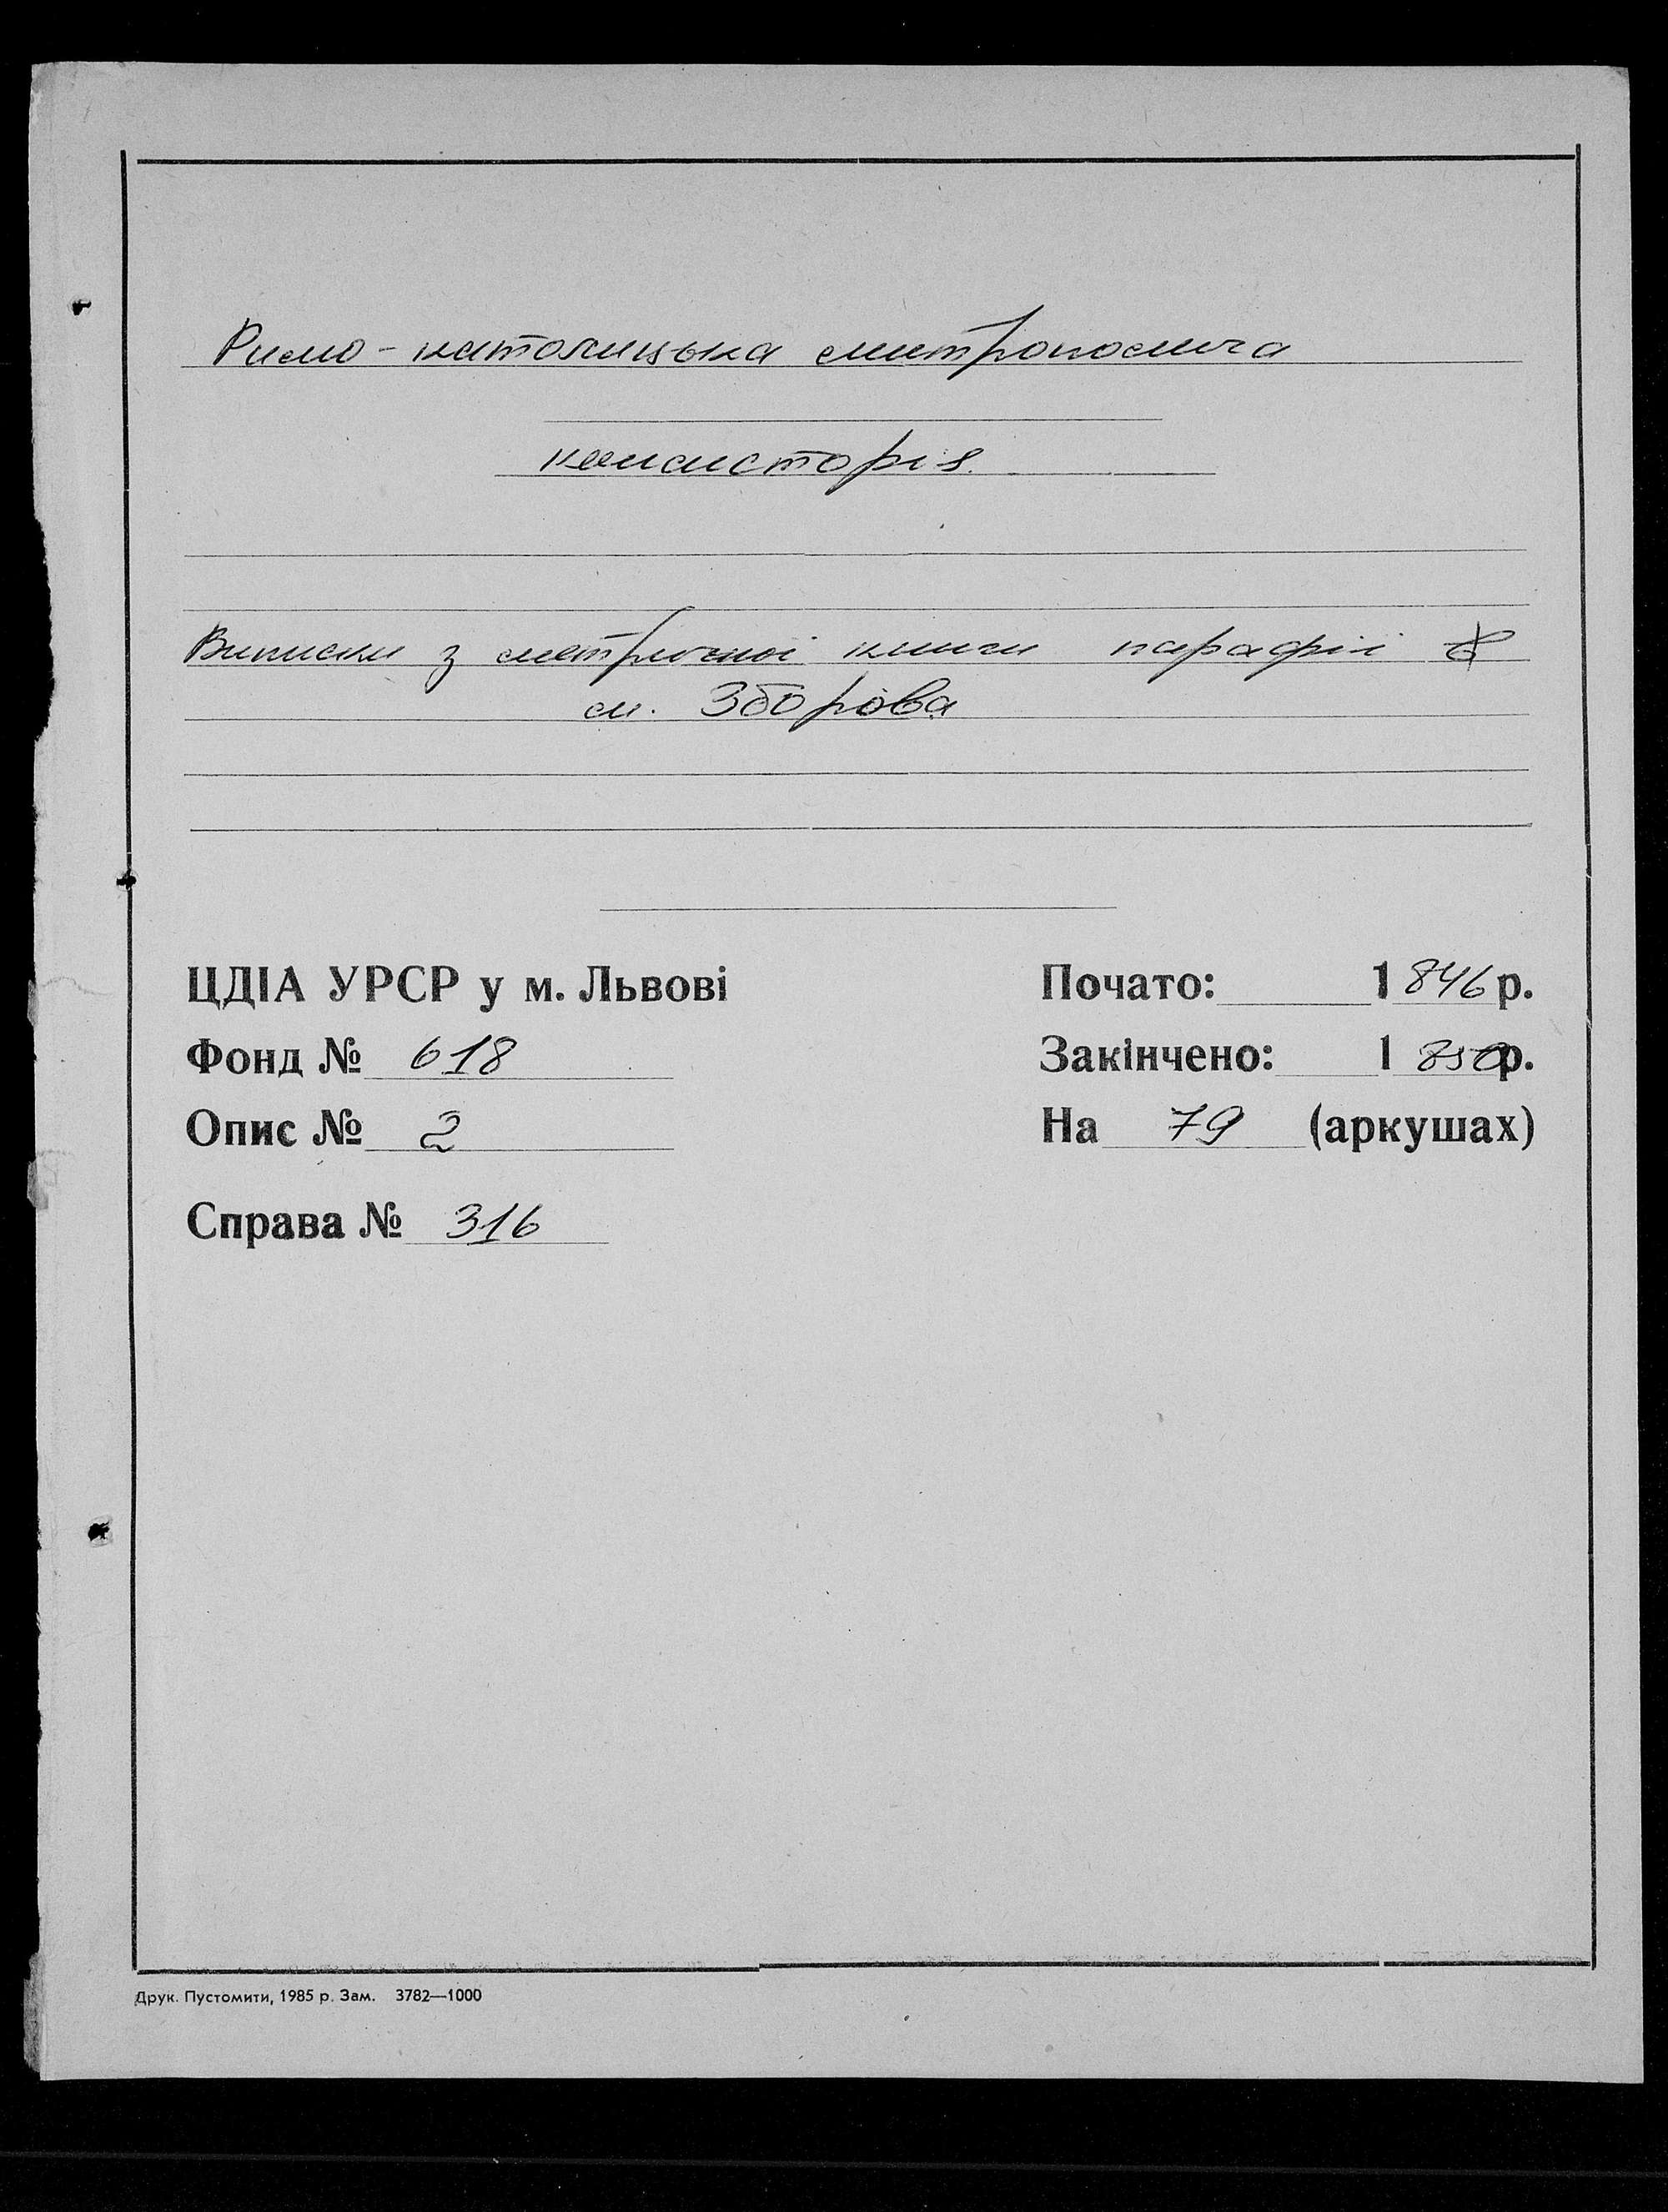 Римо-католицька митрополича
консисторія
Виписки з метричної книги парафії
м. Зборова
ЦДІА УРСР у м. Львові
Почато: 1846 р.
Фонд № 618
Закінчено: 1850 р.
Опис № 2
На 79 (аркушах)
Справа № 316
Друк. Пустомити, 1985 р. Зам. 3782—1000